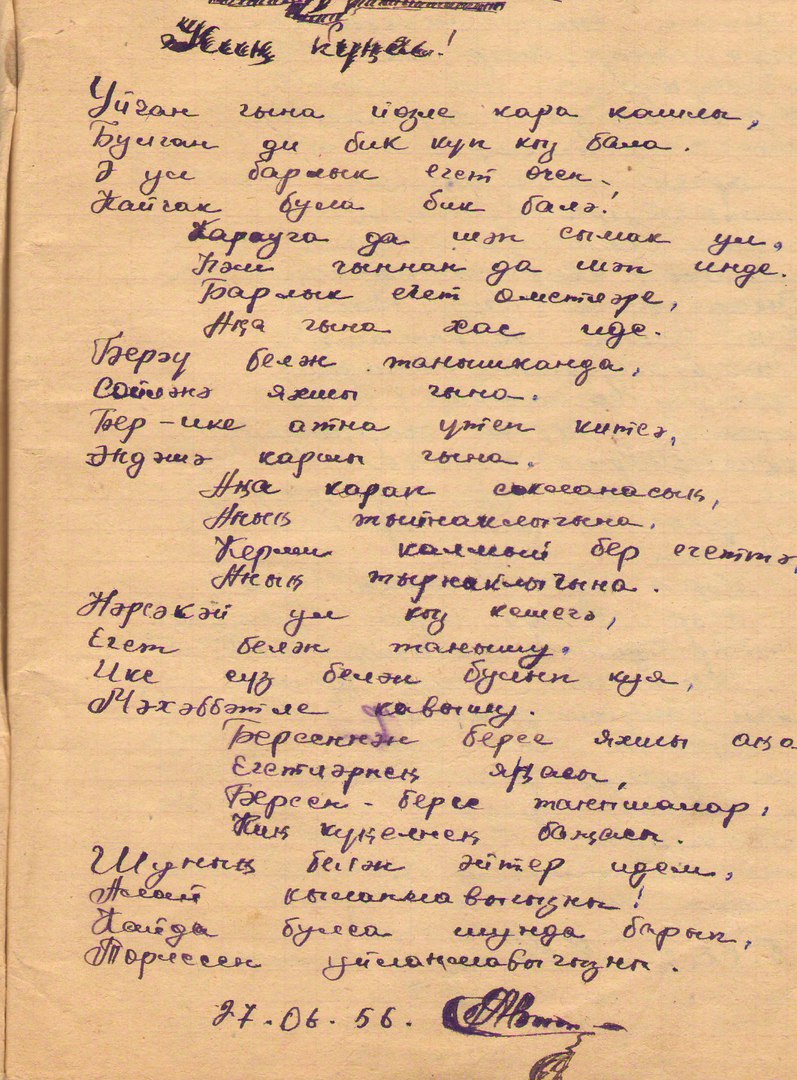 Киң күңел!
Уйчан гына йөзле кара кашлы,
Булган ди бик күп кыз бала.
Ә ул барлык егет өчен
Кайчак була бик бәла!
Карауга да шәп сымак ул,
Һәм чыннан да шәп инде.
Барлык егет өметләре,
Аңа гына хас иде.
Берәү белән танышканда,
Сөйләнә яхшы гына.
Бер-ике атна үтеп китсә,
Эндәшә каршы гына.
Аңа карап сокланасың,
Аның җыйнаклыгына.
Керми калмый бер егеттә,
Аның тырнаклыгына.
Нәрсәкәй ул кыз кешегә,
Егет белән танышу.
Ике сүз белән булып куя,
Мәхәббәтле кавышу.
Берсеннән берсе яхшы аңа
Егетләрнең яңасы,
Берсен-берсе танышалар,
Киң күңелнең баҗасы.
Шуның белән әйтер идем,
Алай кыланмавыгызны!
Кайда булса шунда барып,
Төрлесен уйланмавыгызны.
27.06.56.